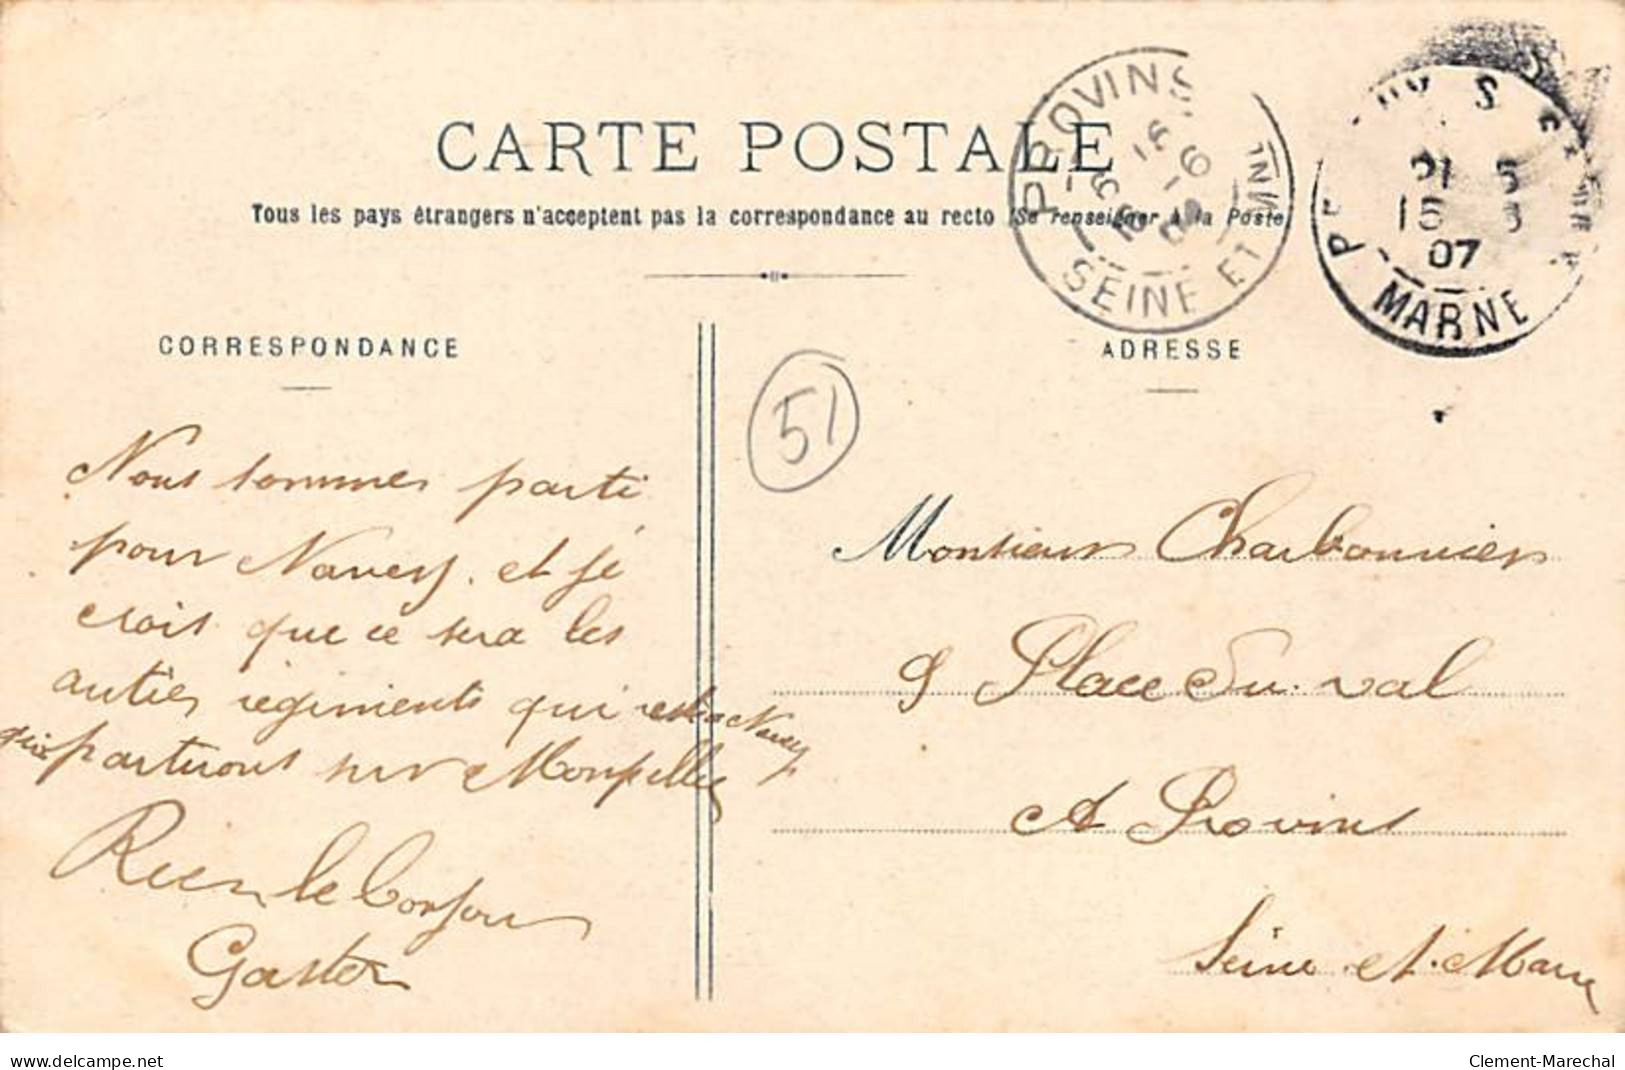 CARTE POSTALE
Tous les pays étrangers n'acceptent pas la correspondance au recto (Se renseigner à la Poste
PROVINS
SEINE ET MNE
S
21 5
15
07
MARNE
CORRESPONDANCE
ADRESSE
51
Nous sommes parti
pour Nancy. et je
crois que ce sera les
auties régiments qui
partirons sur Monpellier
Rien le bonjour
Gaston
Monsieur Charbonnier
9 Place Du. val
A Provins
Seine et. Marne
delcampe.net
Clement-Marechal